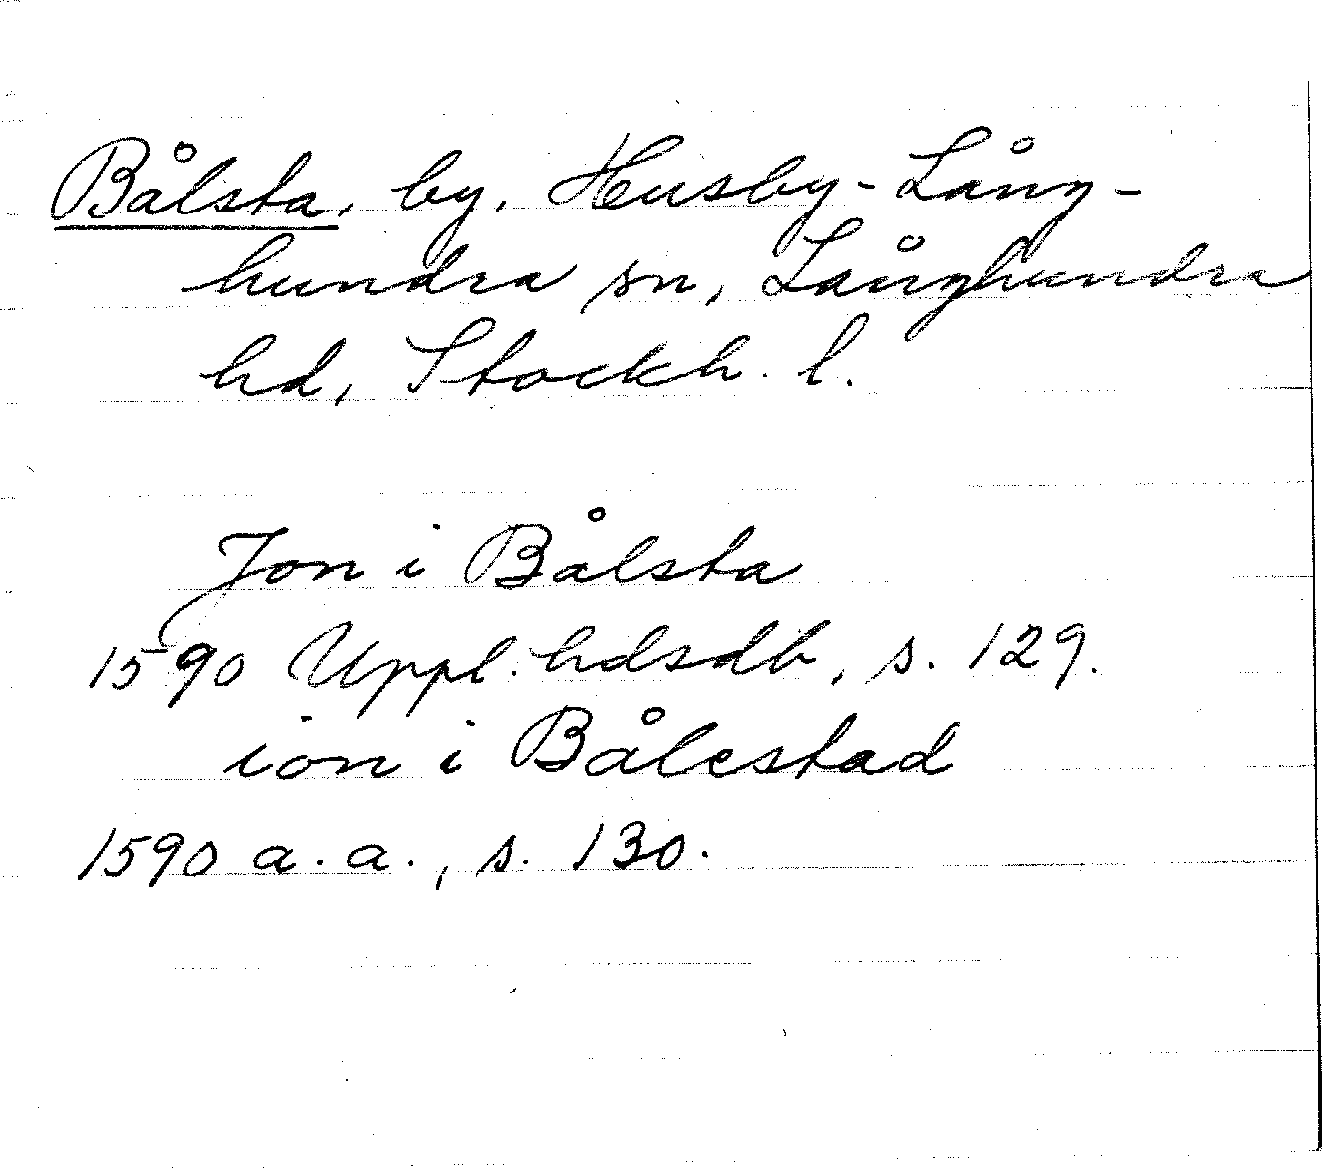 Bålsta, by, Husby-Lång-
hundra sn, Långhundra
hd, Stockh. l.
Jon i Bålsta
1590 Uppl. hdsdb, s. 129.
ion i Bålestad
1590 a.a., s. 130.